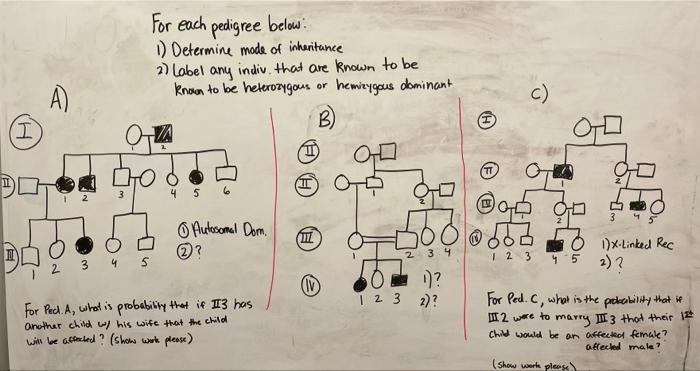 For each pedigree below:
1) Determine mode of inheritance
2) Label any indiv. that are known to be
known to be heterozygous or hemizygous dominant
A)
I
1 2
II
1 2 3 4 5 6
① Autosomal Dom.
② ?
III
1 2 3 4 5
For Ped. A, what is probability that if II3 has
another child w/ his wife that the child
will be affected? (show work please)
B)
II
II
1 2
III
1 2 3 4
IV
1 2 3
1) ?
2) ?
C)
I
II
1 2
IV
1 2 3 4 5
IV
1 2 3 4 5
1) X-Linked Rec
2) ?
For Ped. C, what is the probability that if
III 2 were to marry III 3 that their 1st
child would be an affected female?
affected male?
(show work please)